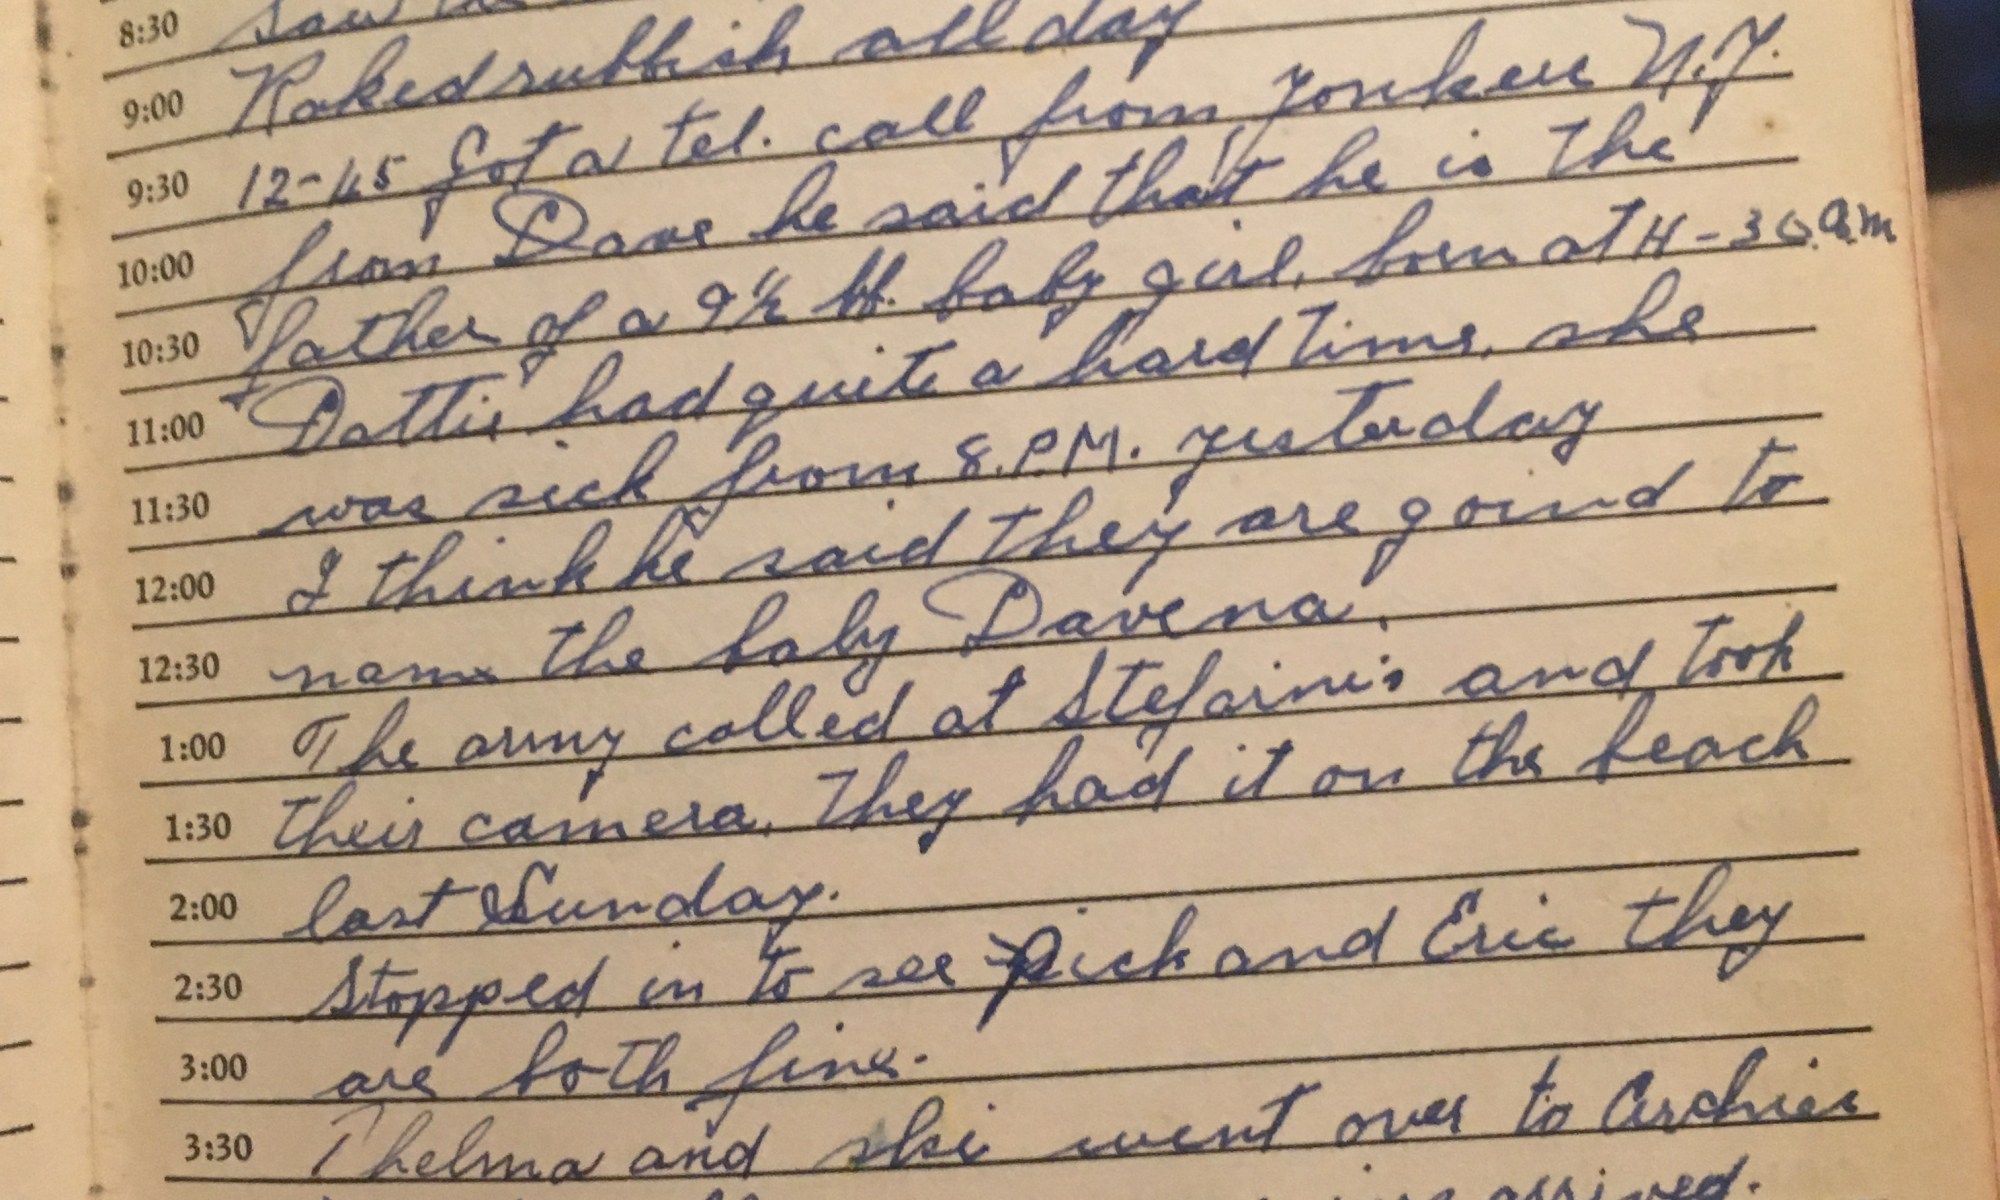 8:30 Saw
9:00 Raked rubbish all day
9:30 12-45 Got a tel. call from Yonkers N.Y.
10:00 from Dave he said that he is the
10:30 father of a 9½ lb. baby girl, born at 4-30 a.m
11:00 Dottie had quite a hard time, she
11:30 was sick from 8.P.M. yesterday
12:00 I think he said they are goind to
12:30 name the baby Davena.
1:00 The army called at Stefaini's and took
1:30 their camera, They had it on the beach
2:00 last Sunday.
2:30 Stopped in to see Rick and Eric they
3:00 are both fine.
3:30 Thelma and she went over to Archies
arrived.